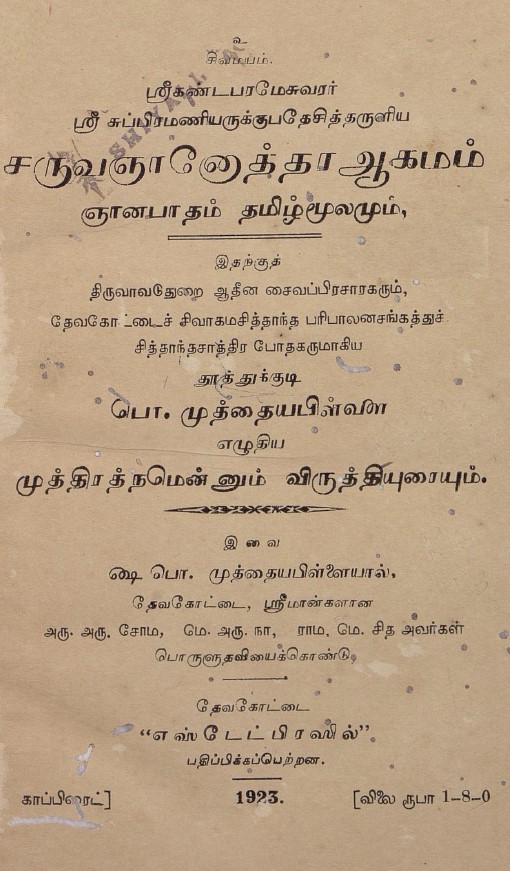 உ
சிவமயம்.
ஸ்ரீகண்டபரமேசுவரர்
ஸ்ரீ சுப்பிரமணியருக்குபதேசித்தருளிய
சருவஞானோத்தர ஆகமம்
ஞானபாதம் தமிழ்மூலமும்,
இதற்குத்
திருவாவடுதுறை ஆதீன சைவப்பிரசாரகரும்,
தேவகோட்டைச் சிவாகமசித்தாந்த பரிபாலனசங்கத்துச்
சித்தாந்தசாத்திர போதகருமாகிய
தூத்துக்குடி
பொ. முத்தையபிள்ளை
எழுதிய
முத்திரத்நமென்னும் விருத்தியுரையும்.
இவை
ஷை பொ. முத்தையபிள்ளையால்,
தேவகோட்டை, ஸ்ரீமான்களான
அரு. அரு. சோம, மெ. அரு. நா, ராம. மெ. சித அவர்கள்
பொருளுதவியைக்கொண்டு,
தேவகோட்டை
“எஸ்டேட்பிரஸில்”
பதிப்பிக்கப்பெற்றன.
காப்பிரைட்] 1923. [விலை ரூபா 1-8-0